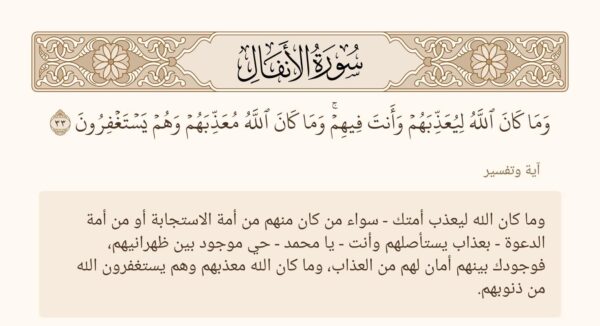 سُورَةُ الأَنفَالِ
وَمَا كَانَ ٱللَّهُ لِيُعَذِّبَهُمۡ وَأَنتَ فِيهِمۡۚ وَمَا كَانَ ٱللَّهُ مُعَذِّبَهُمۡ وَهُمۡ يَسۡتَغۡفِرُونَ ٣٣
آية وتفسير
وما كان الله ليعذب أمتك - سواء من كان منهم من أمة الاستجابة أو من أمة
الدعوة - بعذاب يستأصلهم وأنت - يا محمد - حي موجود بين ظهرانيهم،
فوجودك بينهم أمان لهم من العذاب، وما كان الله معذبهم وهم يستغفرون الله
من ذنوبهم.